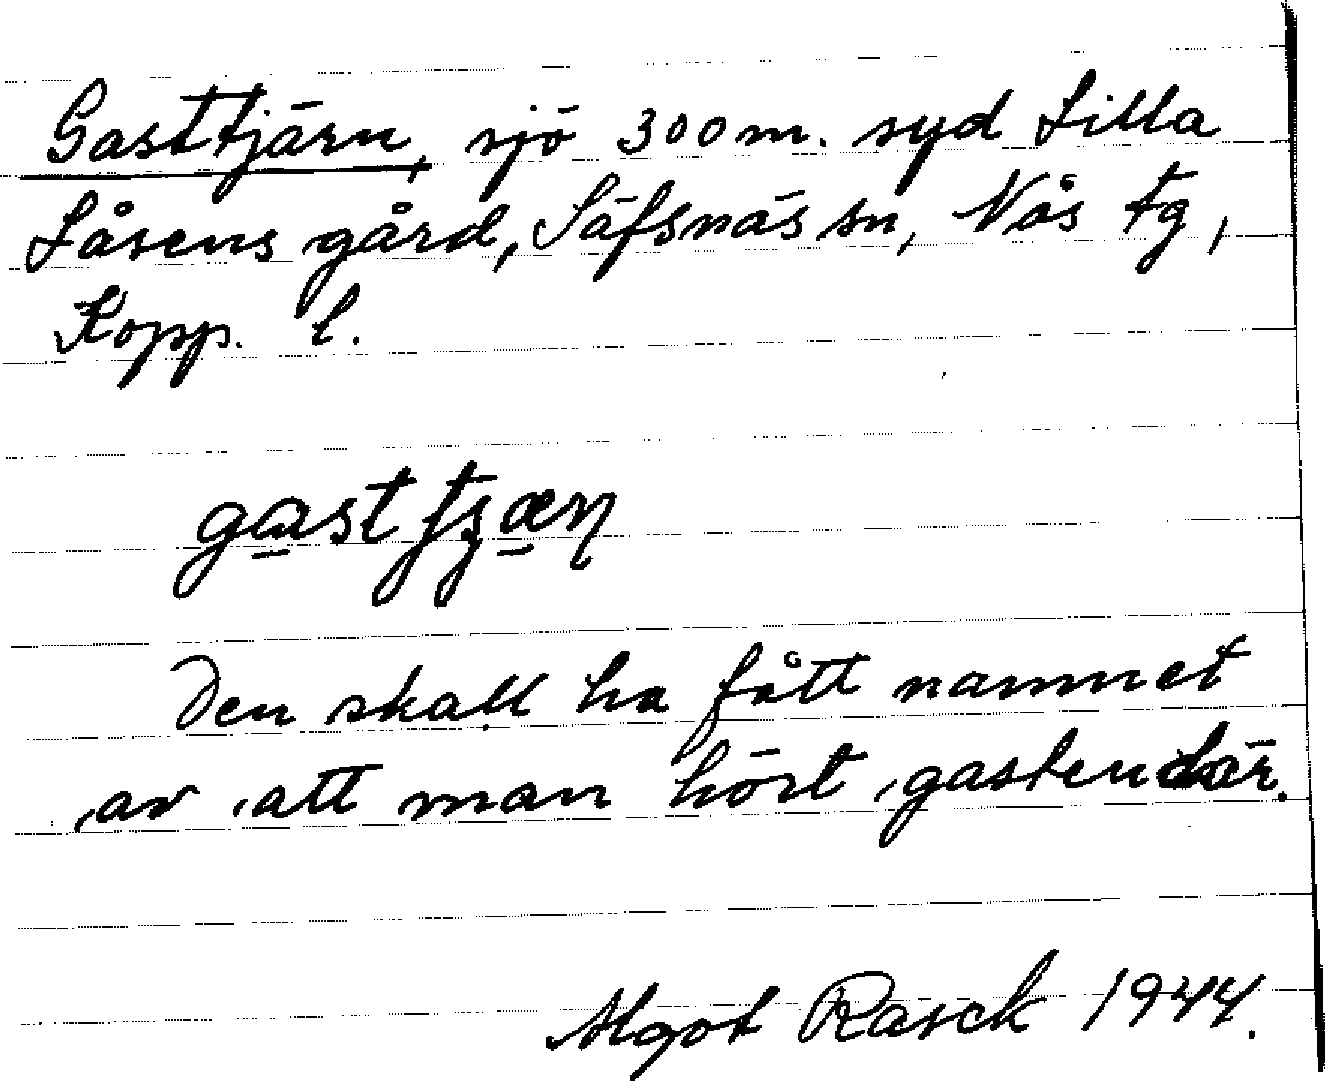 Gasttjärn, sjö 300 m. syd Lilla
Låsens gård, Säfsnäs sn, Nås tg,
Kopp. l.
Den skall ha fått namnet
av att man hört gasten där.
Algot Rasck 1944.